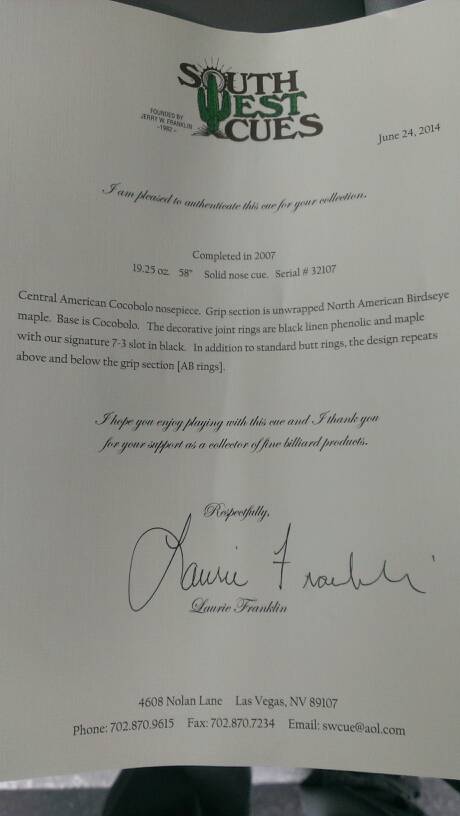 SOUTH
WEST
CUES
FOUNDED BY
JERRY W. FRANKLIN
-1982-
June 24, 2014
I am pleased to authenticate this cue for your collection.
Completed in 2007
19.25 oz. 58" Solid nose cue. Serial # 32107
Central American Cocobolo nosepiece. Grip section is unwrapped North American Birdseye
maple. Base is Cocobolo. The decorative joint rings are black linen phenolic and maple
with our signature 7-3 slot in black. In addition to standard butt rings, the design repeats
above and below the grip section [AB rings].
I hope you enjoy playing with this cue and I thank you
for your support as a collector of fine billiard products.
Respectfully,
Laurie Franklin
Laurie Franklin
4608 Nolan Lane Las Vegas, NV 89107
Phone: 702.870.9615 Fax: 702.870.7234 Email: swcue@aol.com